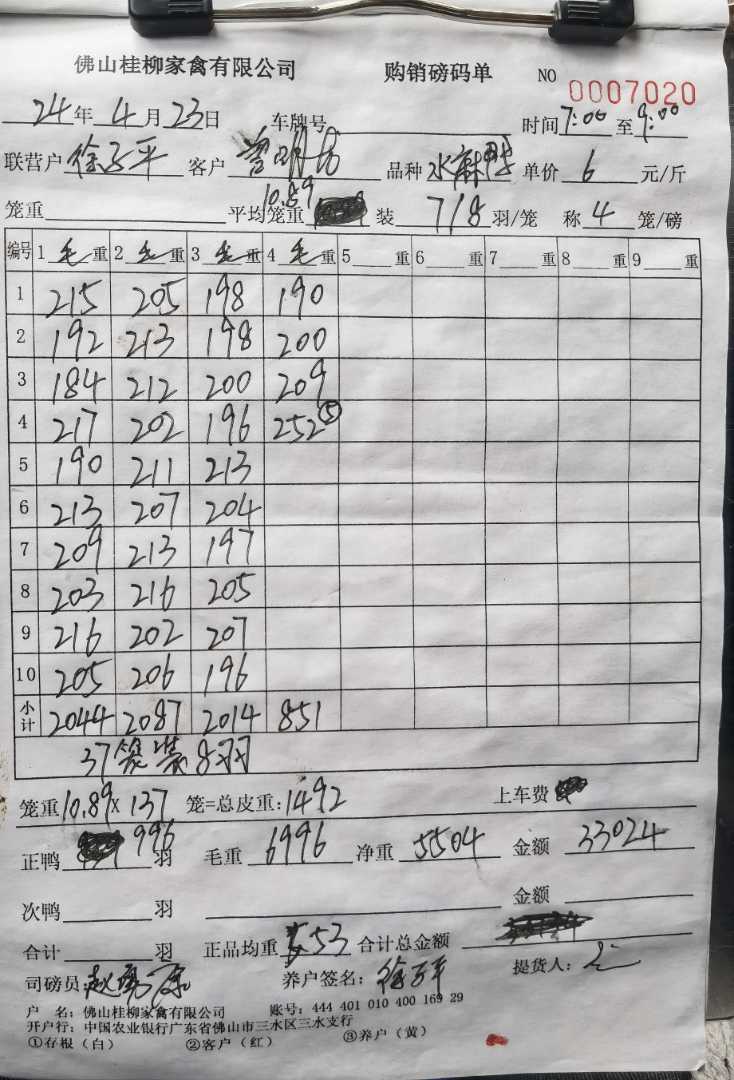 佛山桂柳家禽有限公司 购销磅码单 NO 0007020
24年 4月 23日 车牌号 时间 7:00 至 9:00
联营户 徐 平 客户 品种 水麻鸭 单价 6 元/斤
笼重 平均笼重 10.89 装 7/8 羽/笼 称 4 笼/磅
编号 1 毛 重 2 毛 重 3 毛 重 4 毛 重 5 重 6 重 7 重 8 重 9 重
1 215 205 198 190
2 192 213 198 200
3 184 212 200 209
4 217 202 196 252⑤
5 190 211 213
6 213 207 204
7 209 213 197
8 203 216 205
9 216 202 207
10 205 206 196
小计 2044 2087 2014 851
37笼装8羽
笼重 10.89 X 137 笼=总皮重: 1492 上车费
正鸭 996 羽 毛重 6996 净重 5504 金额 33024
次鸭 羽 金额
合计 羽 正品均重 5.53 合计总金额
司磅员: 赵 养户签名: 徐 平 提货人:
户 名: 佛山桂柳家禽有限公司 账号: 444 401 010 400 169 29
开户行: 中国农业银行广东省佛山市三水区三水支行
①存根（白） ②客户（红） ③养户（黄）